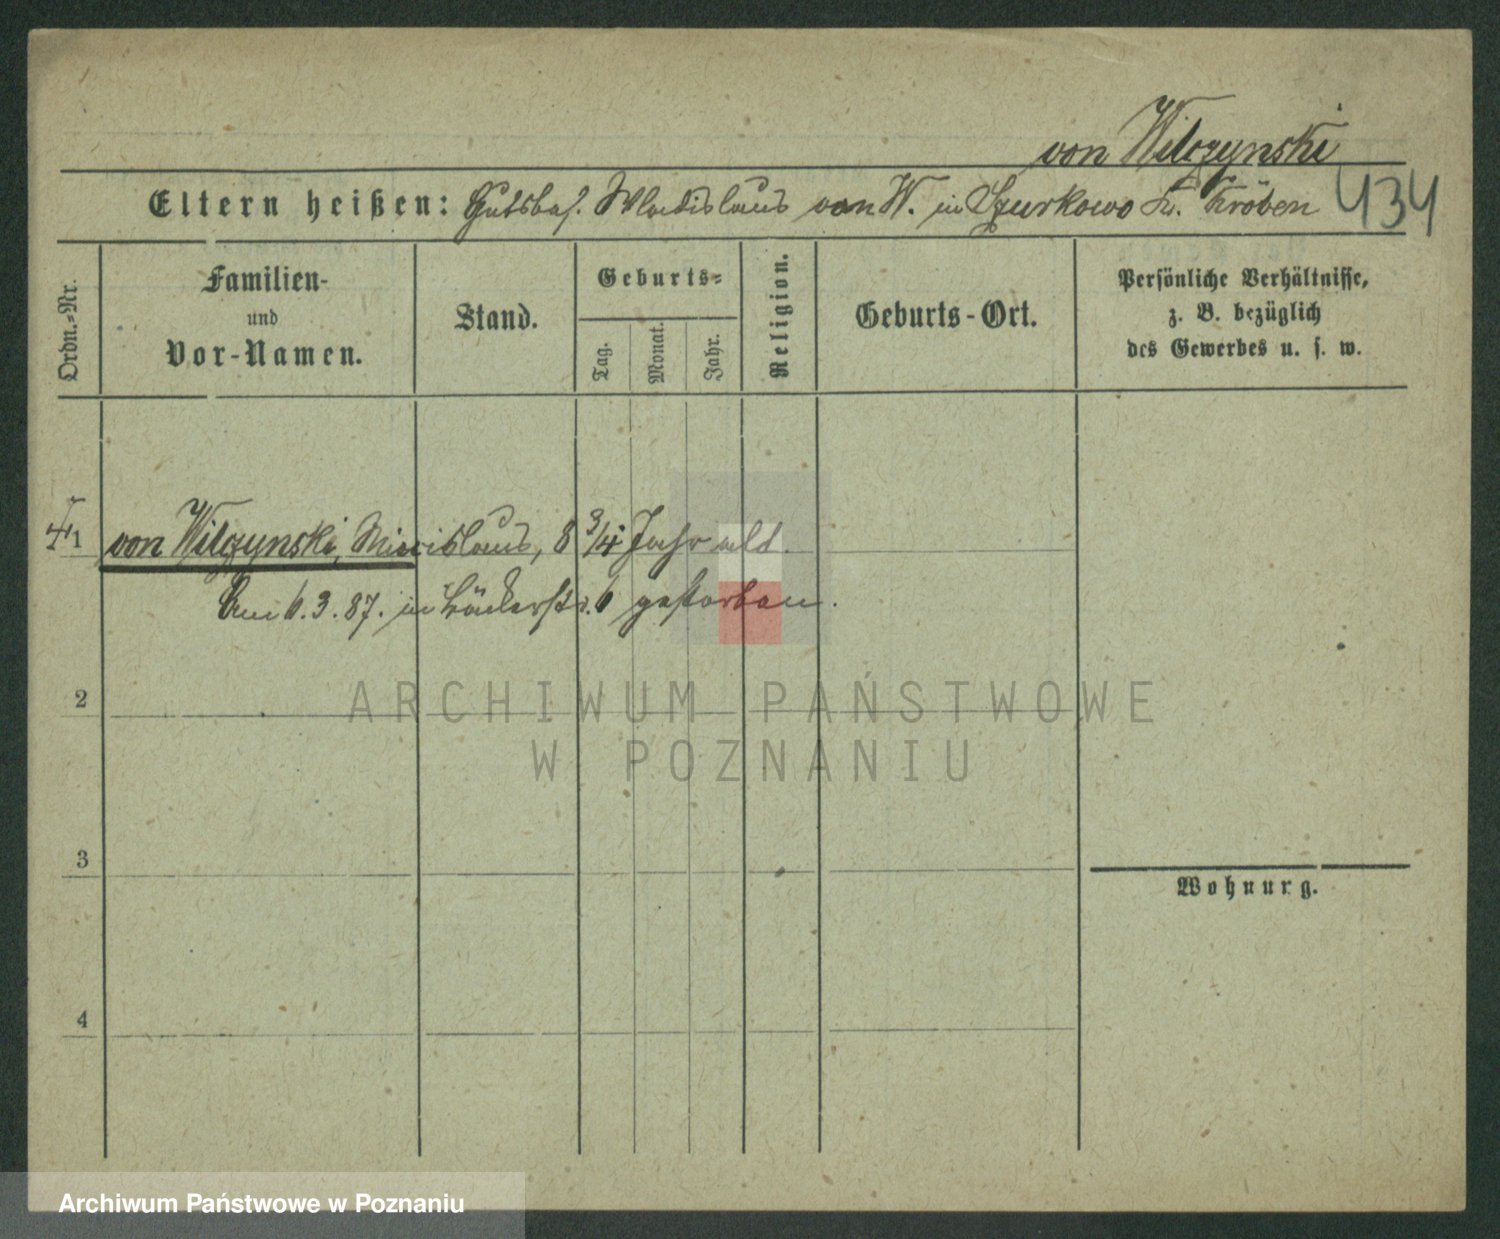 von Wilczynski
Eltern heißen: Gutsbes. Wladislaus von W. in Szurkowo Kr. Kröben 434
Ordn.-Nr.
Familien-
und
Vor-Namen.
Stand.
Geburts-
Tag.
Monat.
Jahr.
Religion.
Geburts-Ort.
Persönliche Verhältnisse,
z. B. bezüglich
des Gewerbes u. s. w.
1 von Wilczynski, Miecislaus, 8 3/4 Jahr alt.
Am 6.3.87. in Bäckerstr. 6 gestorben.
2
ARCHIWUM PAŃSTWOWE
W POZNANIU
3
Wohnung.
4
Archiwum Państwowe w Poznaniu